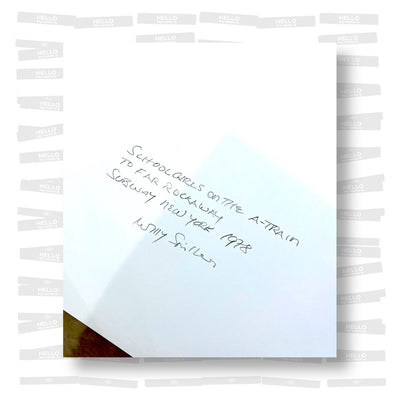 SCHOOLGIRLS ON THE A-TRAIN
TO FAR ROCKAWAY
SUBWAY NEW YORK 1978
Willy Spiller